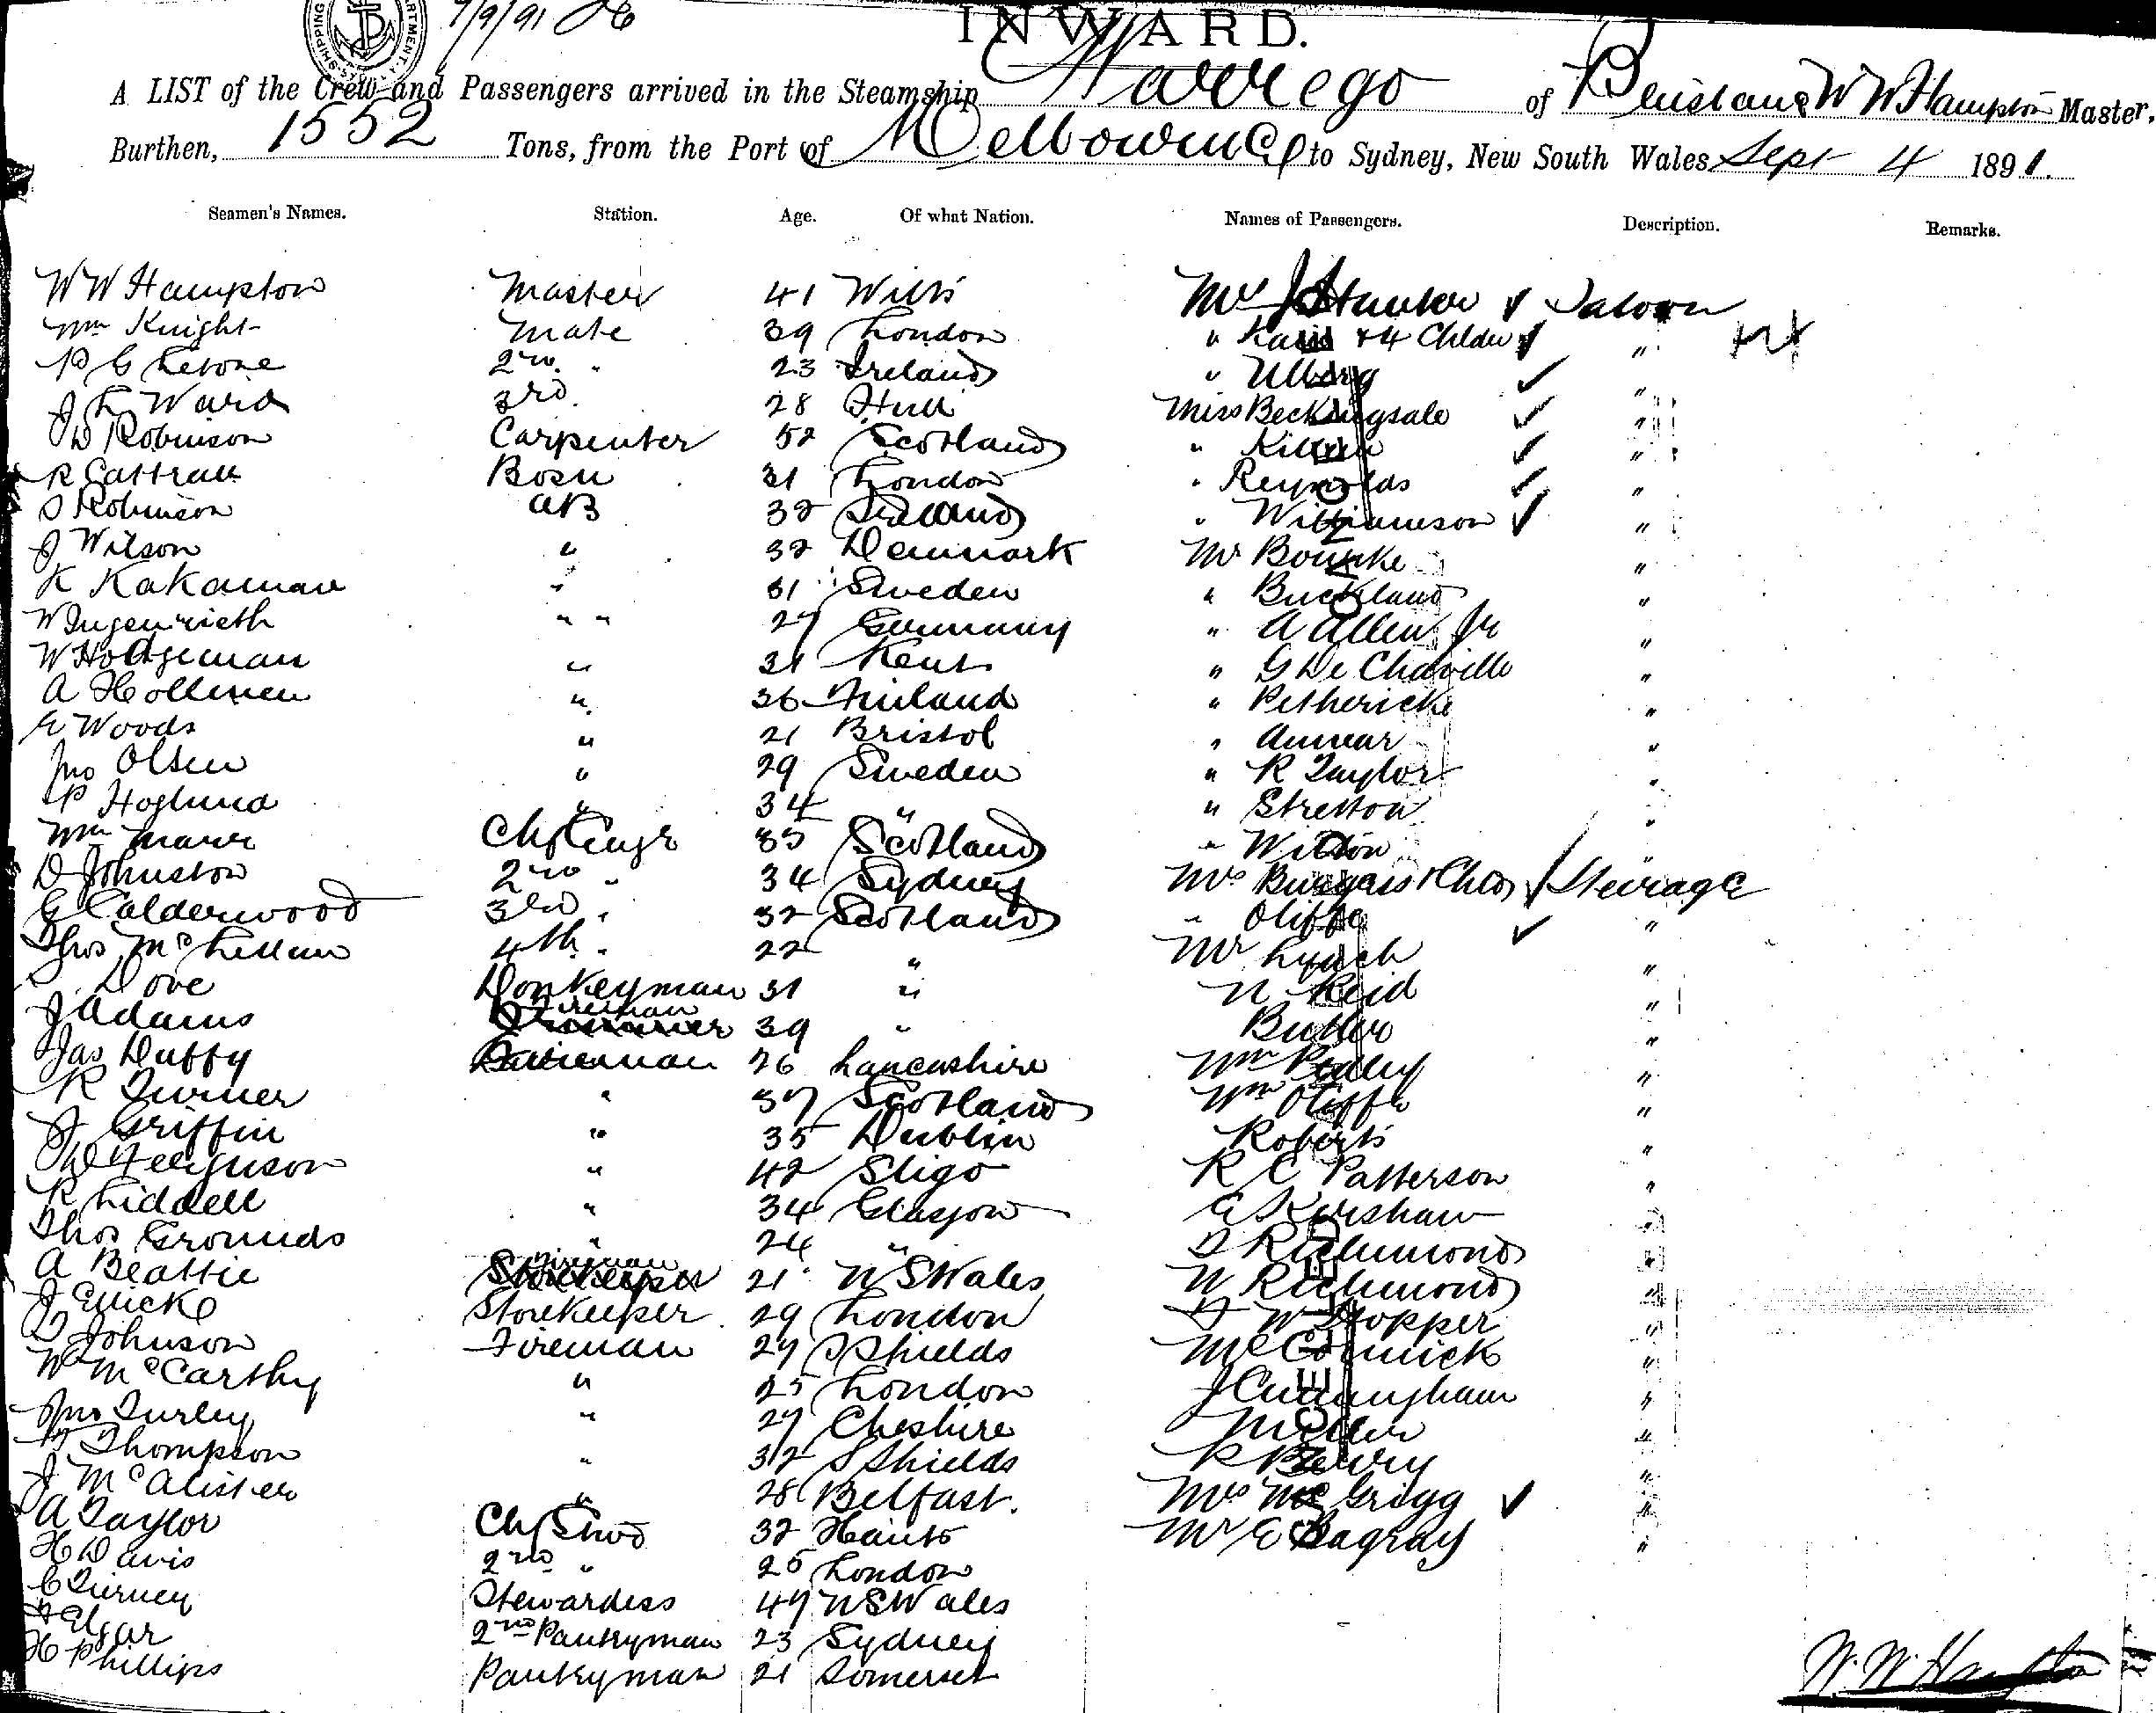 7/9/91
INWARD.
A LIST of the Crew and Passengers arrived in the Steamship Warrego of Brisbane W W Hampton Master,
Burthen, 1552 Tons, from the Port of Melbourne to Sydney, New South Wales Sept 4 1891.
Seamen's Names. Station. Age. Of what Nation. Names of Passengers. Description. Remarks.
W W Hampton Master 41 Wilts Mrs Saloon
Wm Knight Mate 39 London " + 4 Childn "
2nd " 23 Ireland " Ulberg "
J L Ward 3rd 28 Hull Miss Beckingsale "
J D Robinson Carpenter 52 Scotland " "
R Cattrall Bosn 31 London " Reynolds "
S Robinson AB 32 " Williamson "
J Wilson " 32 Denmark Mr Bourke "
K Kakaman " 31 Sweden " Buckland "
W Ingenrieth " " 27 Germany " A Allen Jr "
W Hodgeman " 31 Kent " G De Chaville "
A Hollmen " 36 Finland " Petherick "
E Woods " 21 Bristol " "
Jno Olsen " 29 Sweden " R Taylor "
P Hoglund " 34 " " Stretton "
Wm Chf Engr 35 Scotland " Wilson "
D Johnston 2nd " 34 Sydney Mrs Burgess + Chld Steerage
G Calderwood 3rd " 32 Scotland " Oliffe "
Thos McLellan 4th " 22 " Mr Lynch "
Dove Donkeyman 31 " N Reid "
J Adams Fireman 39 " Butler "
Jas Duffy Fireman 26 Lancashire Wm "
R Turner " 37 Scotland Wm Oliffe "
J Griffin " 35 Dublin Roberts "
W Ferguson " 42 Sligo R C Patterson "
R Liddell " 34 Glasgow E Kershaw "
Thos Grounds " 24 " D Richmond "
A Beattie Fireman 21 N S Wales W Richmond "
J Ellick Storekeeper 29 London W Hopper "
D Johnson Fireman 27 S Shields McCormick "
W McCarthy " 25 London J Cunningham "
Jno Turley " 27 Cheshire Miller "
Thompson " 32 S Shields R Berry "
J McAlister " 28 Belfast. Mrs McGrigg "
A Taylor Chf Stwd 32 Hants Mr E Bagray "
H Davis 2nd " 25 London
C Tierney Stewardess 49 NSWales
Elgar 2nd Pantryman 23 Sydney
H Phillips Pantryman 21 Somerset
W. W. Hampton